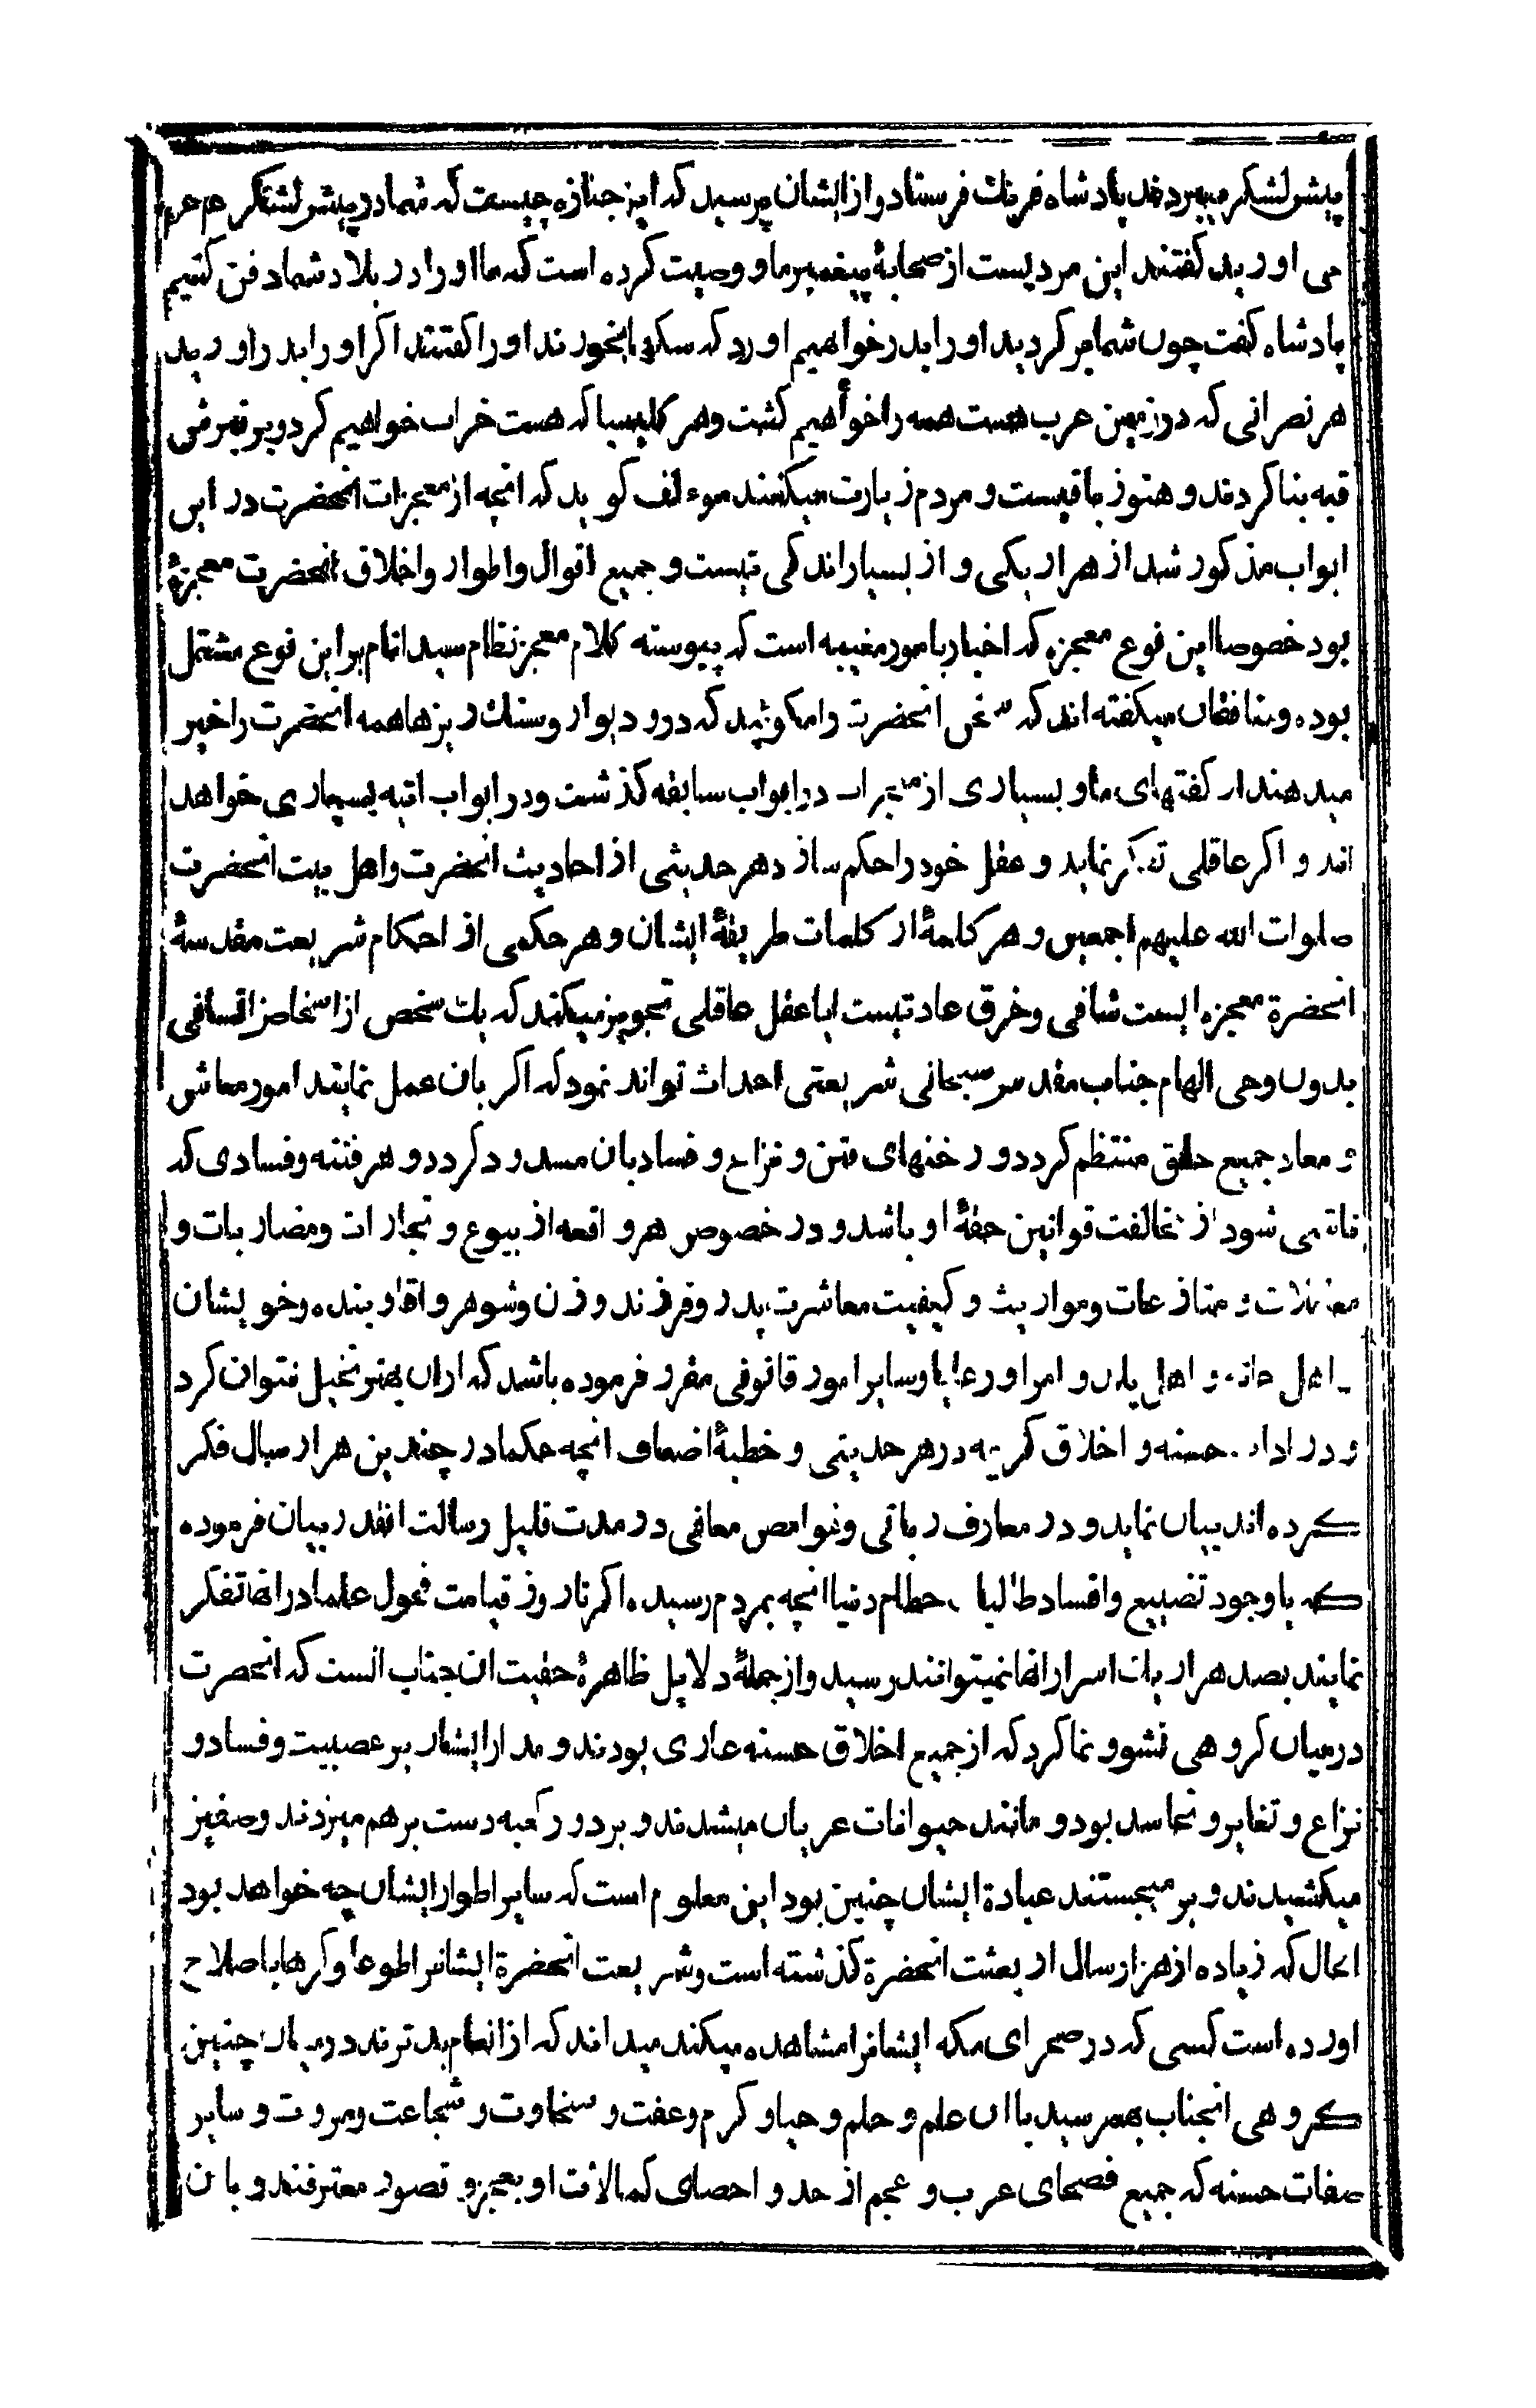 پیش لشکر میبردند پادشاه فرنك فرستاد و از ایشان پرسید که این جنازه چیست که شما در پیش لشکر هم
می اورید کفتند این مردیست از صحابهٔ پیغمبر ما و وصیت کرده است که ما او را در بلاد شما دفن کنیم
پادشاه کفت چون شما برکردید او را بدر خواهیم اورد که سکها بخورند او را کفتند اکر او را بدر اورید
هر نصرانی که در زمین عرب هست همه را خواهیم کشت و هر کلیسیا که هست خراب خواهیم کرد و بر قبرش
قبه بنا کردند و هنوز باقیست و مردم زیارت میکنند موءلف کوید که انچه از معجزات انحضرت در این
ابواب مذکور شد از هزار یکی و از بسیار اندکی نیست و جمیع اقوال و اطوار و اخلاق انحضرت معجزهٔ
بود خصوصا این نوع معجزه که اخبار بامور مغیبه است که پیوسته کلام معجز نظام سید انام بر این نوع مشتمل
بوده و منافقان میکفته اند که سخن انحضرت را مکوئید که در و دیوار و سنك ریزها همه انحضرت را خبر
میدهند از کفتهای ما و بسیاری از معجزات در ابواب سابقه کذشت و در ابواب اتیه بسیاری خواهد
امد و اکر عاقلی تفکر نماید و عقل خود را حکم سازد هر حدیثی از احادیث انحضرت و اهل بیت انحضرت
صلوات الله علیهم اجمعین و هر کلمهٔ از کلمات طریقهٔ ایشان و هر حکمی از احکام شریعت مقدسهٔ
انحضرة معجزه ایست شافی و خرق عادتیست ایا عقل عاقلی تجویز میکند که یك شخص از اشخاص انسانی
بدون وحی الهام جناب مقدس سبحانی شریعتی احداث تواند نمود که اکر بان عمل نمایند امور معاش
و معاد جمیع خلق منتظم کردد و رخنهای فتن و نزاع و فساد بان مسدود کردد و هر فتنه و فسادی که
ناشی شود از مخالفت قوانین حقهٔ او باشد و در خصوص هر واقعه از بیوع و تجارات و مضاربات و
معاملات و منازعات و مواریث و کیفیت معاشرت پدر و فرزند و زن و شوهر و اقا و بنده و خویشان
و اهل خانه و اهل بلد و امرا و رعایا و سایر امور قانونی مقرر فرموده باشد که ازان بهتر تخیل نتوان کرد
و در اداب حسنه و اخلاق کریمه در هر حدیثی و خطبهٔ اضعاف انچه حکما در چندین هزار سال فکر
کرده اند بیان نماید و در معارف ربانی و غوامص معانی در مدت قلیل رسالت انقدر بیان فرموده
که باوجود تضییع و افساد طالبان حطام دنیا انچه بمردم رسیده اکر تا روز قیامت فحول علما در انها تفکر
نمایند بصد هزار یك اسرار انها نمیتوانند رسید و از جملهٔ دلایل ظاهرهٔ حقیت ان جناب انست که انحصرت
درمیان کروهی نشو و نما کرد که از جمیع اخلاق حسنه عاری بودند و مدار ایشان بر عصبیت و فساد و
نزاع و تغایر و تحاسد بود و مانند حیوانات عریان میشدند و بر دور کعبه دست بر هم میزدند و صفیر
میکشیدند و بر میجستند عبادة ایشان چنین بود این معلوم است که سایر اطوار ایشان چه خواهد بود
الحال که زیاده از هزار سال از بعثت انحضرة کذشته است و شریعت انحضرة ایشانرا طوعا و کرها باصلاح
اورده است کسی که در صحرای مکه ایشانرا مشاهده میکند میداند که از انعام بدترند درمیان چنین
کروهی انجناب بهمرسید با ان علم و حلم و حیا و کرم و عفت و سخاوت و شجاعت و مروت و سایر
صفات حسنه که جمیع فصحای عرب و عجم از حد و احصای کمالات او بعجز و قصور معترفند و بان